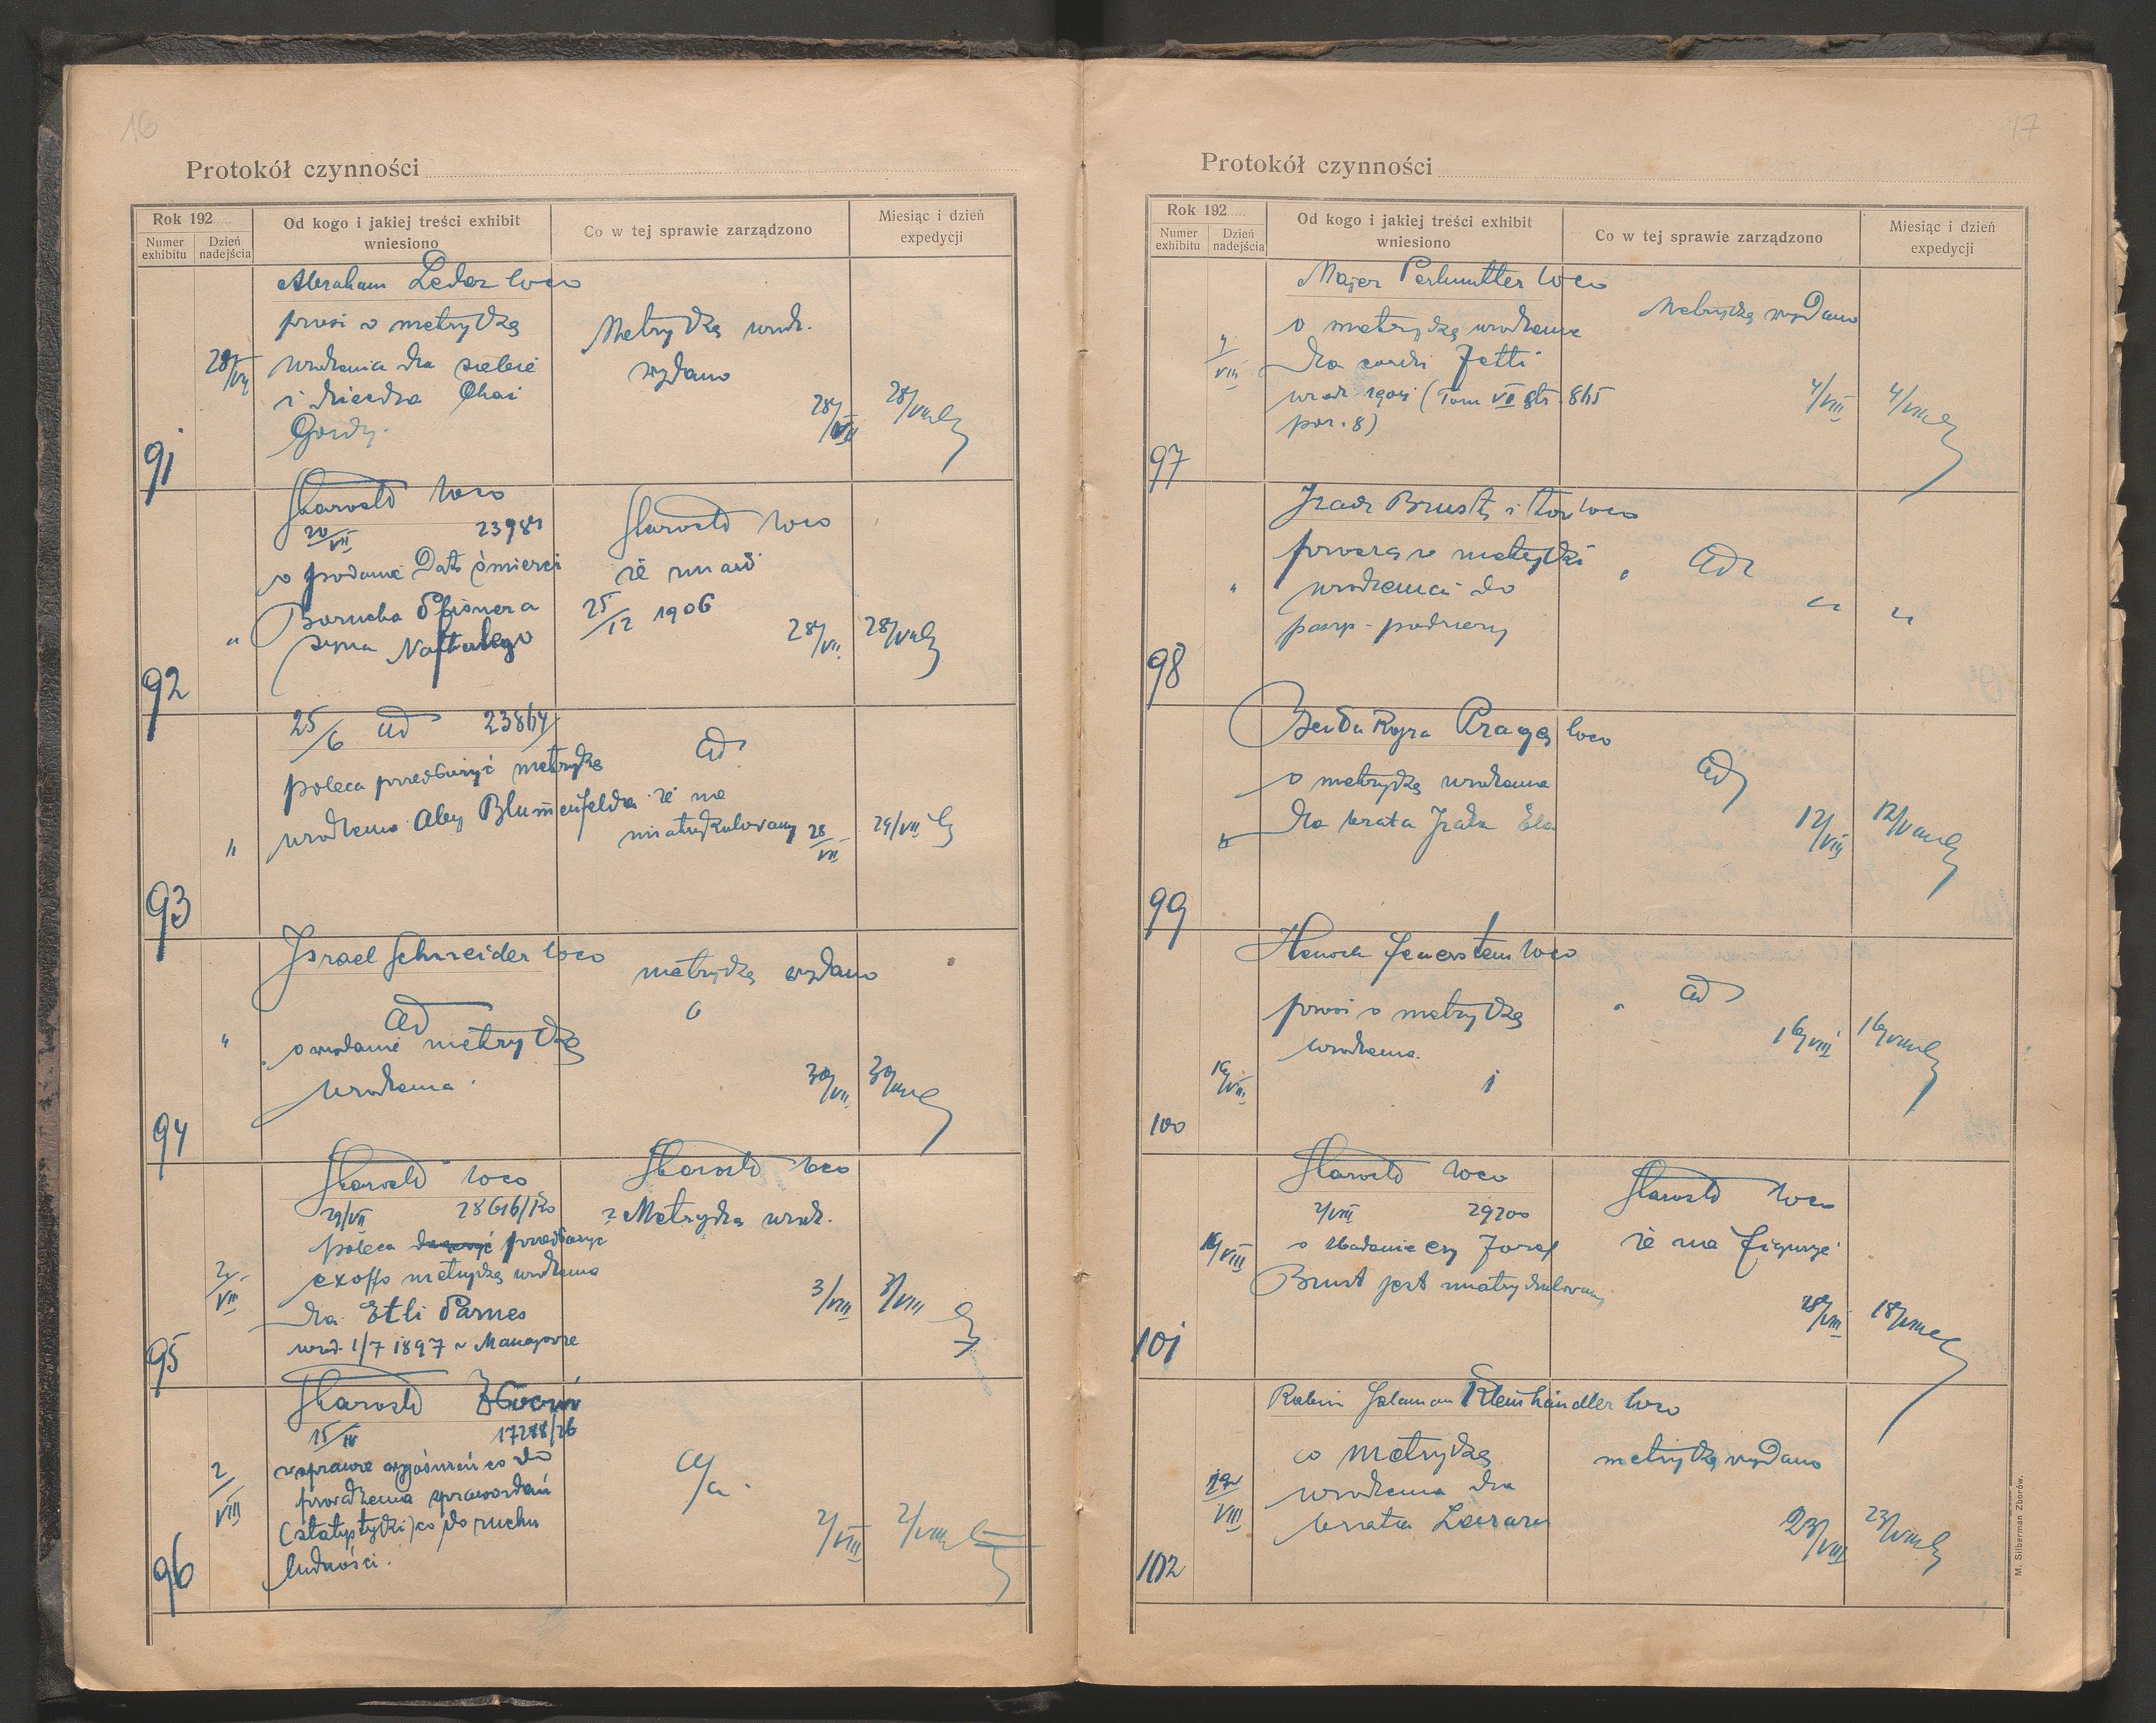 16
Protokół czynności
Rok 192
Numer exhibitu
Dzień nadejścia
Od kogo i jakiej treści exhibit wniesiono
Co w tej sprawie zarządzono
Miesiąc i dzień expedycji
91
28/VII
Abraham Leder loco
prosi o metrykę
urodzenia dla siebie
i dziecka Chai
Metrykę urodz.
wydano
28/VII
28/VII
92
"
Starostwo loco
20/VII
o podanie Daty śmierci
Barucha
syna Naftalego
Starostwo loco
że zmarł
25/12 1906
28/VII
28/VII
93
"
25/6 ad
poleca przedłożyć metrykę
urodzenia Aby Blumenfelda
ad
że nie
matrykulowany
28/VII
29/VII
94
"
Israel Schneider loco
ad
o wydanie metryki
urodzenia
metrykę wydano
30/VII
30/VII
95
2/VIII
Starostwo loco
29/VII
28616/
poleca przedłożyć
exoffo metrykę urodzenia
dla Etli Parnes
urod. 1/7 1897 w
Starostwo loco
z Metryką urodz.
3/VIII
3/VIII
96
2/VIII
Starostwo Zborów
15/IV
w sprawie wyjaśnień co do
prowadzenia sprawozdań
(statystyki) co do ruchu
ludności.
a/a.
2/VIII
2/VIII
17
Protokół czynności
Rok 192
Numer exhibitu
Dzień nadejścia
Od kogo i jakiej treści exhibit wniesiono
Co w tej sprawie zarządzono
Miesiąc i dzień expedycji
97
Majer Perlmutter loco
o metrykę urodzenia
dla córki Jetti
urodz. 1904 (Tom VII str. 865
poz. 8)
Metrykę wydano
4/VIII
4/VIII
98
"
loco
metryki
urodzenia do
"
"
99
loco
o metrykę urodzenia
dla brata
ad
12/VIII
12/VIII
100
16/VIII
Henoch Feuerstein loco
prosi o metrykę
urodzenia
ad
16/VIII
16/VIII
101
16/VIII
Starostwo loco
2/VIII
29200
o zbadanie czy Josef
Brust jest matrykulowany
Starostwo loco
że nie figuruje
18/VIII
18/VIII
102
Rabin Salamon Kleinhändler loco
o metrykę
urodzenia dla
brata
metrykę wydano
23/VIII
23/VIII
M. Silberman Zborów.